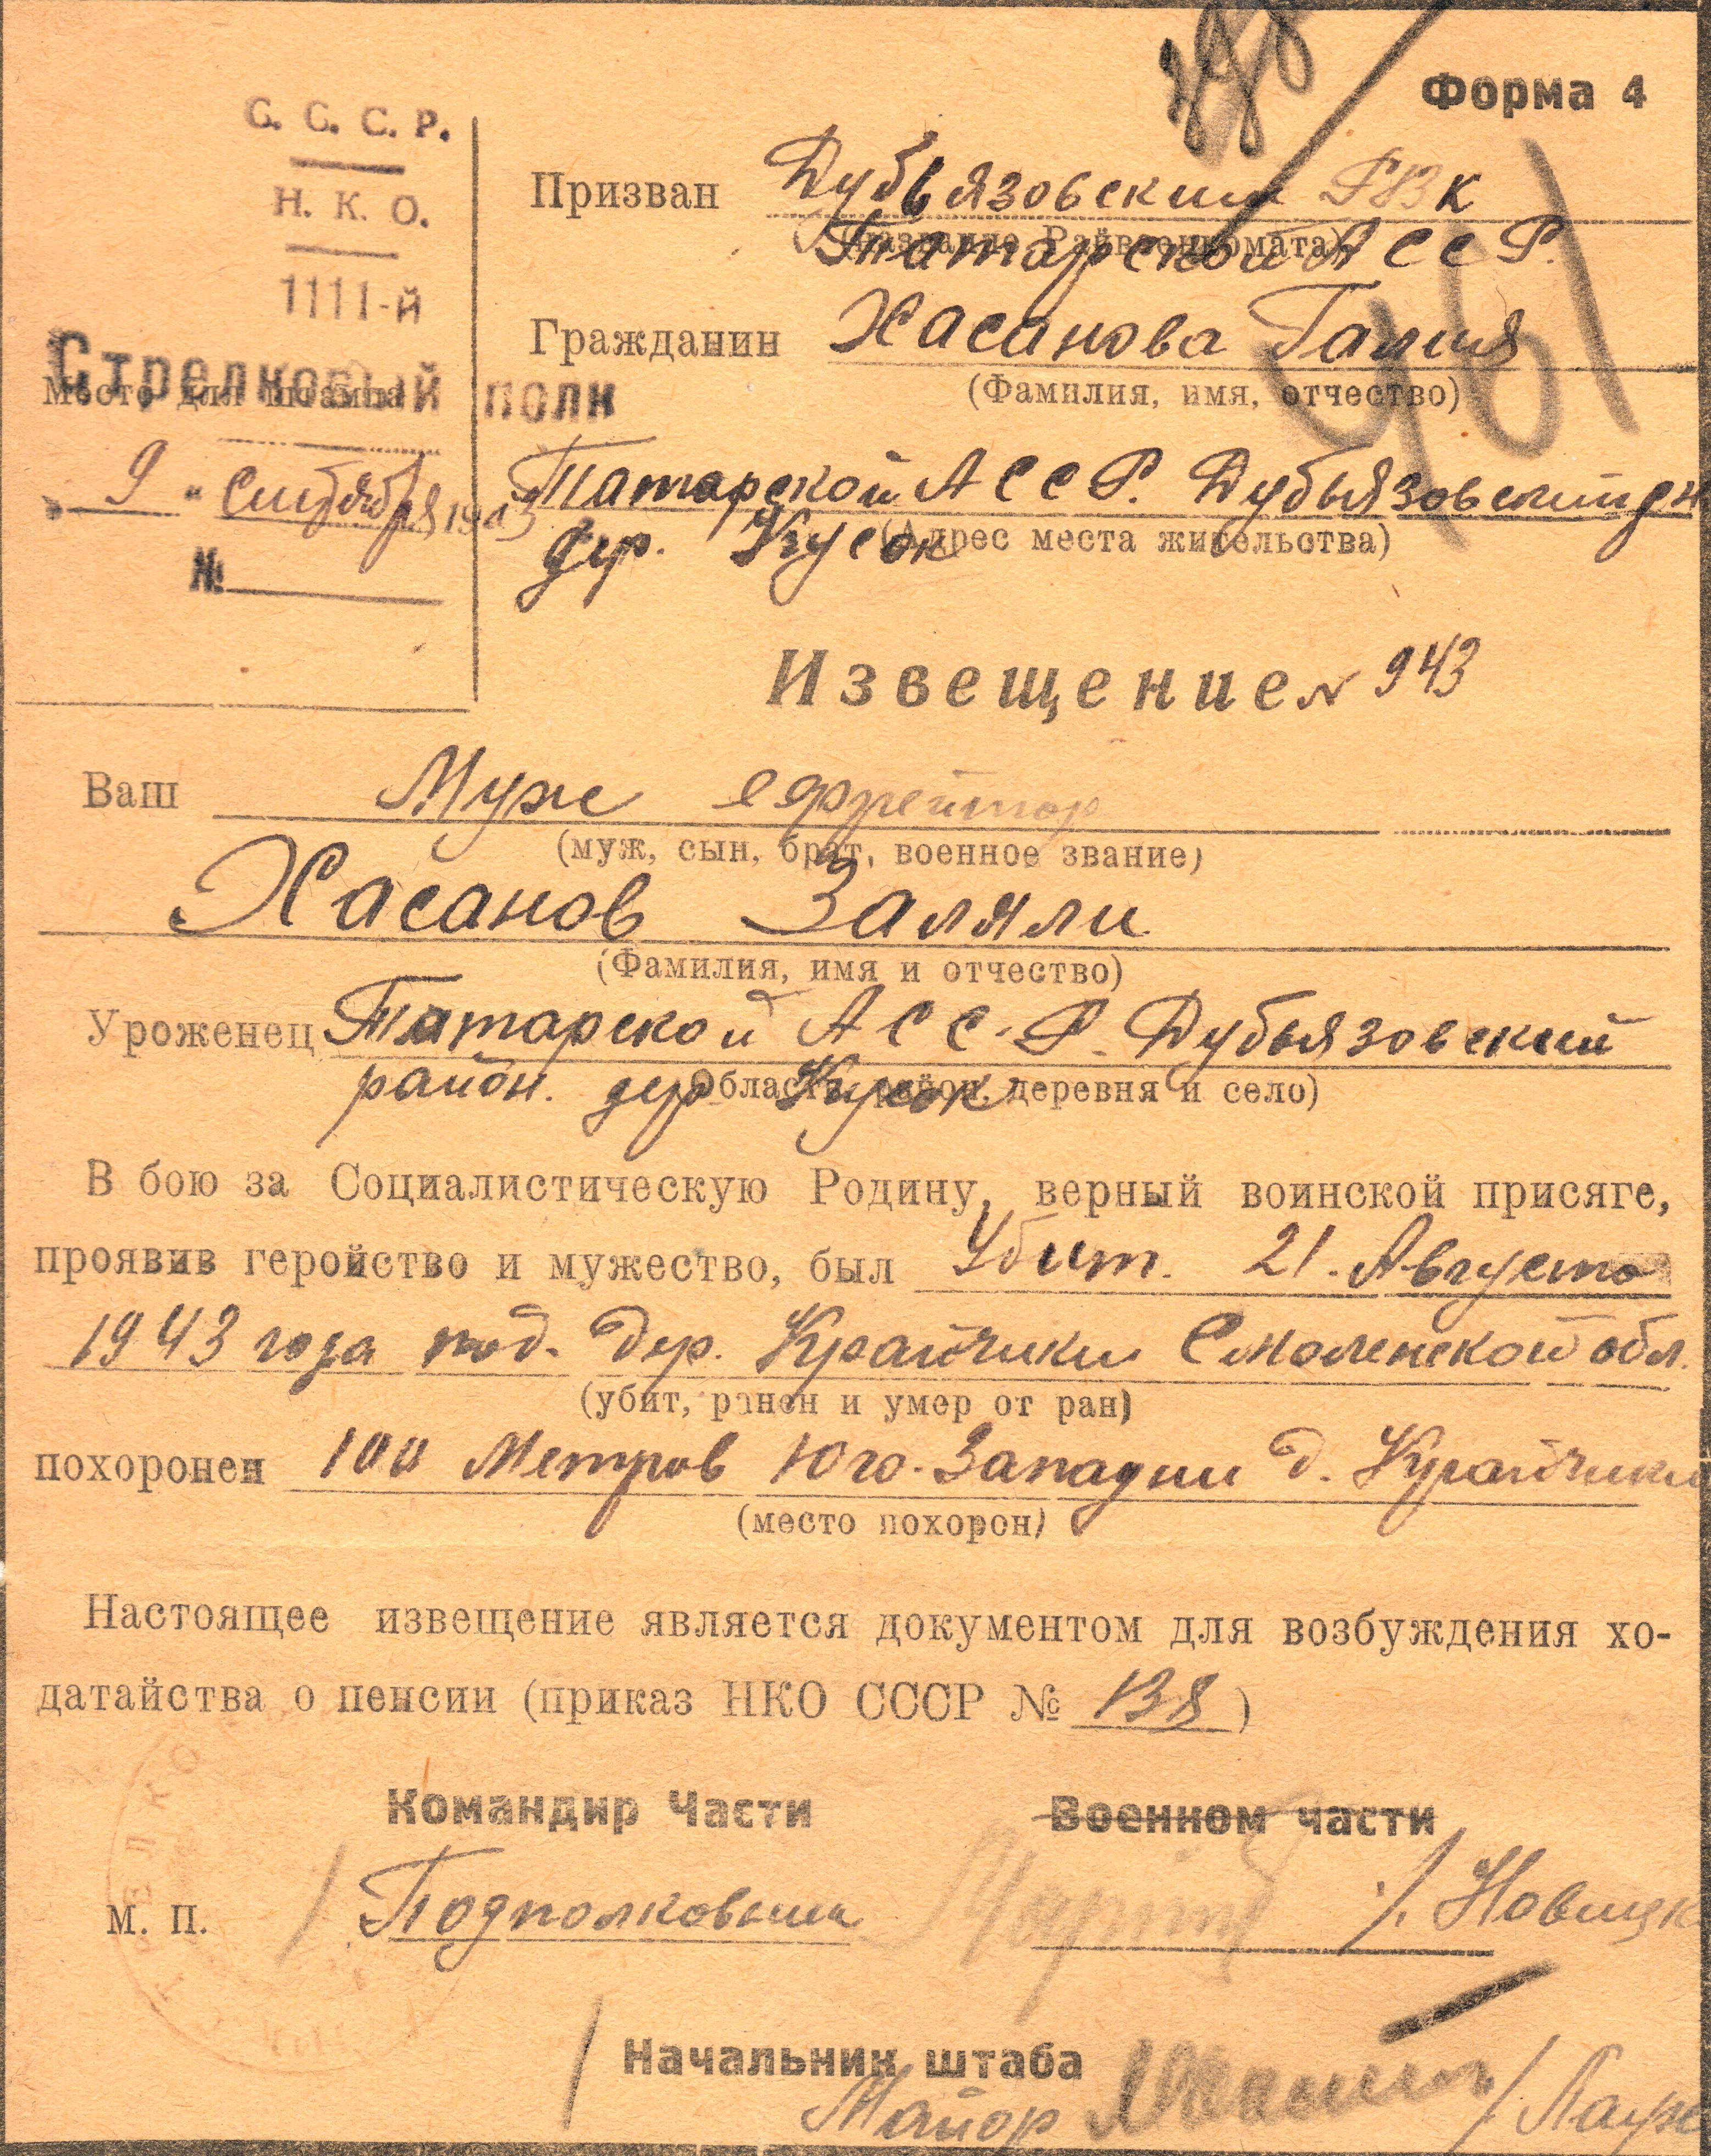 Форма 4
С. С. С. Р.
Н. К. О.
1111-й
Стрелковый полк
Место для штампа
„ 9 " сентября 1943
№
Призван Дубьязовским РВК
(название Райвоенкомата)
Татарской АССР.
Гражданин Хасанова Галия
(Фамилия, имя, отчество)
Татарской АССР. Дубьязовский
(Адрес места жительства)
дер. Кусок
Извещение N 943
Ваш Муж ефрейтор
(муж, сын, брат, военное звание)
Хасанов Заляли
(Фамилия, имя и отчество)
Уроженец Татарской АССР. Дубьязовский
(Область, район, деревня и село)
район. дер Кусок
В бою за Социалистическую Родину, верный воинской присяге,
проявив геройство и мужество, был Убит. 21. Августа
1943 года под. дер. Крайчики Смоленской обл.
(убит, ранен и умер от ран)
похоронен 100 Метров Юго-Западнее д. Крайчики
(место похорон)
Настоящее извещение является документом для возбуждения хо-
датайства о пенсии (приказ НКО СССР № 138)
Командир Части Военком части
М. П. / Подполковник /. Новицк
/ Начальник штаба
Майор /